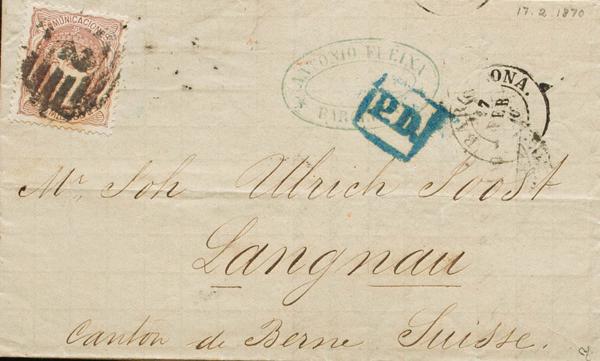 17.2 1870
COMUNICACIONES
ANTONIO FLEIXA
BAR
P.D.
BARC ONA.
17 FEB
Mr. Joh Ulrich Joost
Langnau
Canton de Berne Suisse.